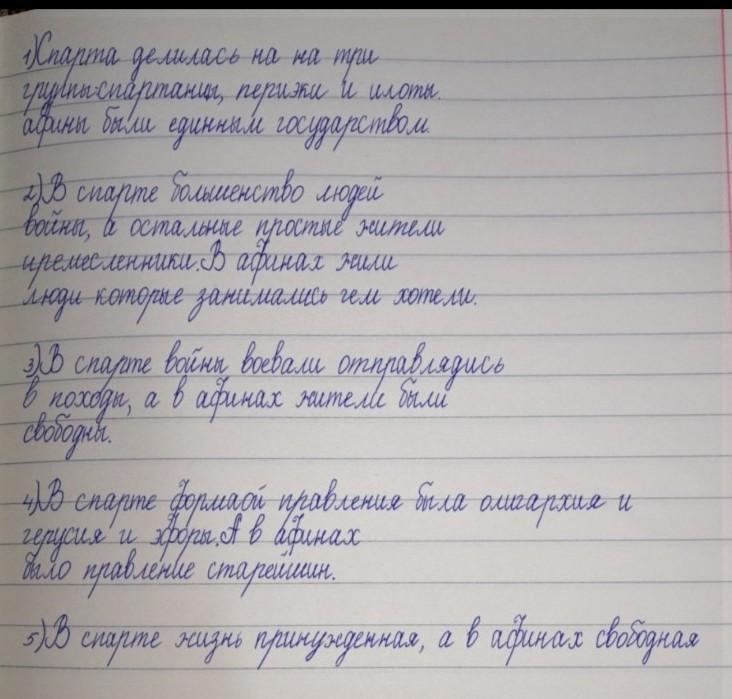 1)Спарта делилась на на три
групы:спартанцы, периэки и илоты.
афины были единным государством.
2)В спарте большенство людей
войны, а остальные простые жители
иремесленники.В афинах жили
люди которые занимались чем хотели.
3)В спарте войны воевали отправлядись
в походы, а в афинах жители были
свободны.
4)В спарте формаой правления была олигархия и
герусия и эфоры.А в афинах
было правление старейшин.
5)В спарте жизнь принужденная, а в афинах свободная